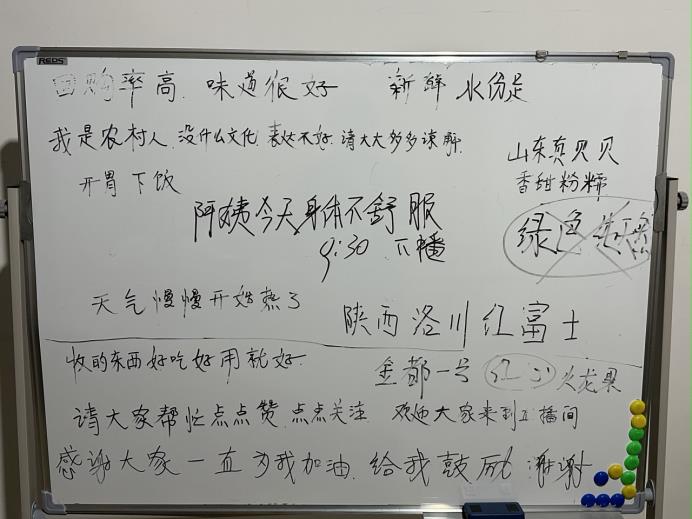 REDS
回购率高. 味道很好 新鲜 水份足
我是农村人. 没什么文化. 表达不好. 请大大多多谅解.
山东贝贝
开胃下饭
香甜粉糯
阿姨今天身体不舒服
绿色
9:30 下播
天气慢慢开始热了
陕西洛川红富士
收的东西好吃好用就好.
金都一号 红心火龙果
请大家帮忙点点赞. 点点关注 欢迎大家来到直播间
感谢大家一直为我加油. 给我鼓励 谢谢